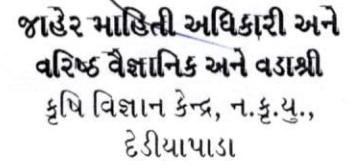 જાહેર માહિતી અધિકારી અને
વરિષ્ઠ વૈજ્ઞાનિક અને વડાશ્રી
કૃષિ વિજ્ઞાન કેન્દ્ર, ન.કૃ.યુ.,
દેડીયાપાડા